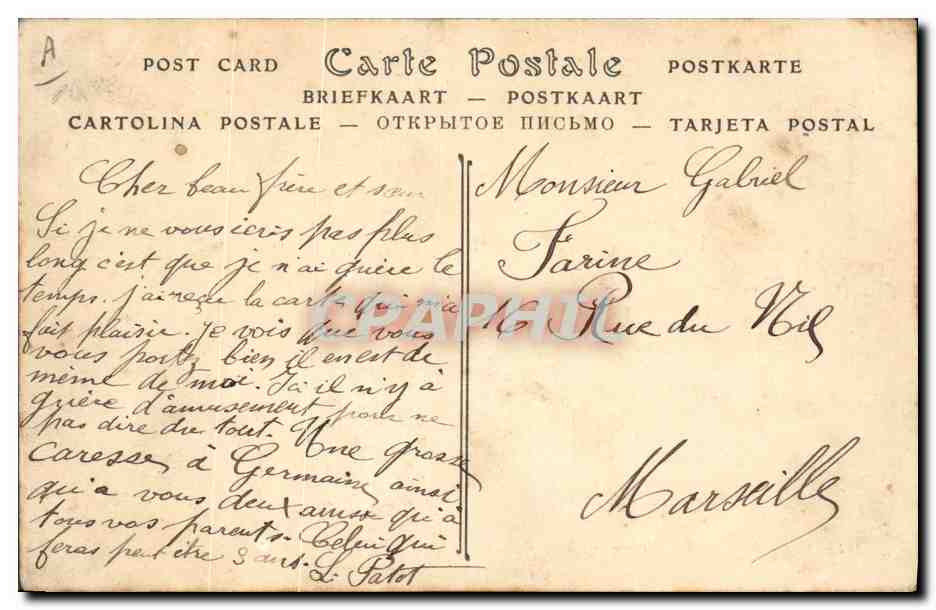 A
POST CARD Carte Postale POSTKARTE
BRIEFKAART — POSTKAART
CARTOLINA POSTALE — ОТКРЫТОЕ ПИСЬМО — TARJETA POSTAL
Cher beau frère et sœur
Si je ne vous ecris pas plus
long c'est que je n'ai guère le
temps. j'ai reçu la carte qui m'a
fait plaisir. Je vois que vous
vous portez bien il en est de
même de moi. Ici il n'y à
guère d'amusement pour ne
pas dire du tout. Une grosse
caresse à Germaine ainsi
qu'a vous deux ainsi qu'à
tous vos parents. Celui qui
feras peut être 3 ans. L. Patot
Monsieur Gabriel
Farine
16 Rue du Nil
Marseille
CPAPHIL